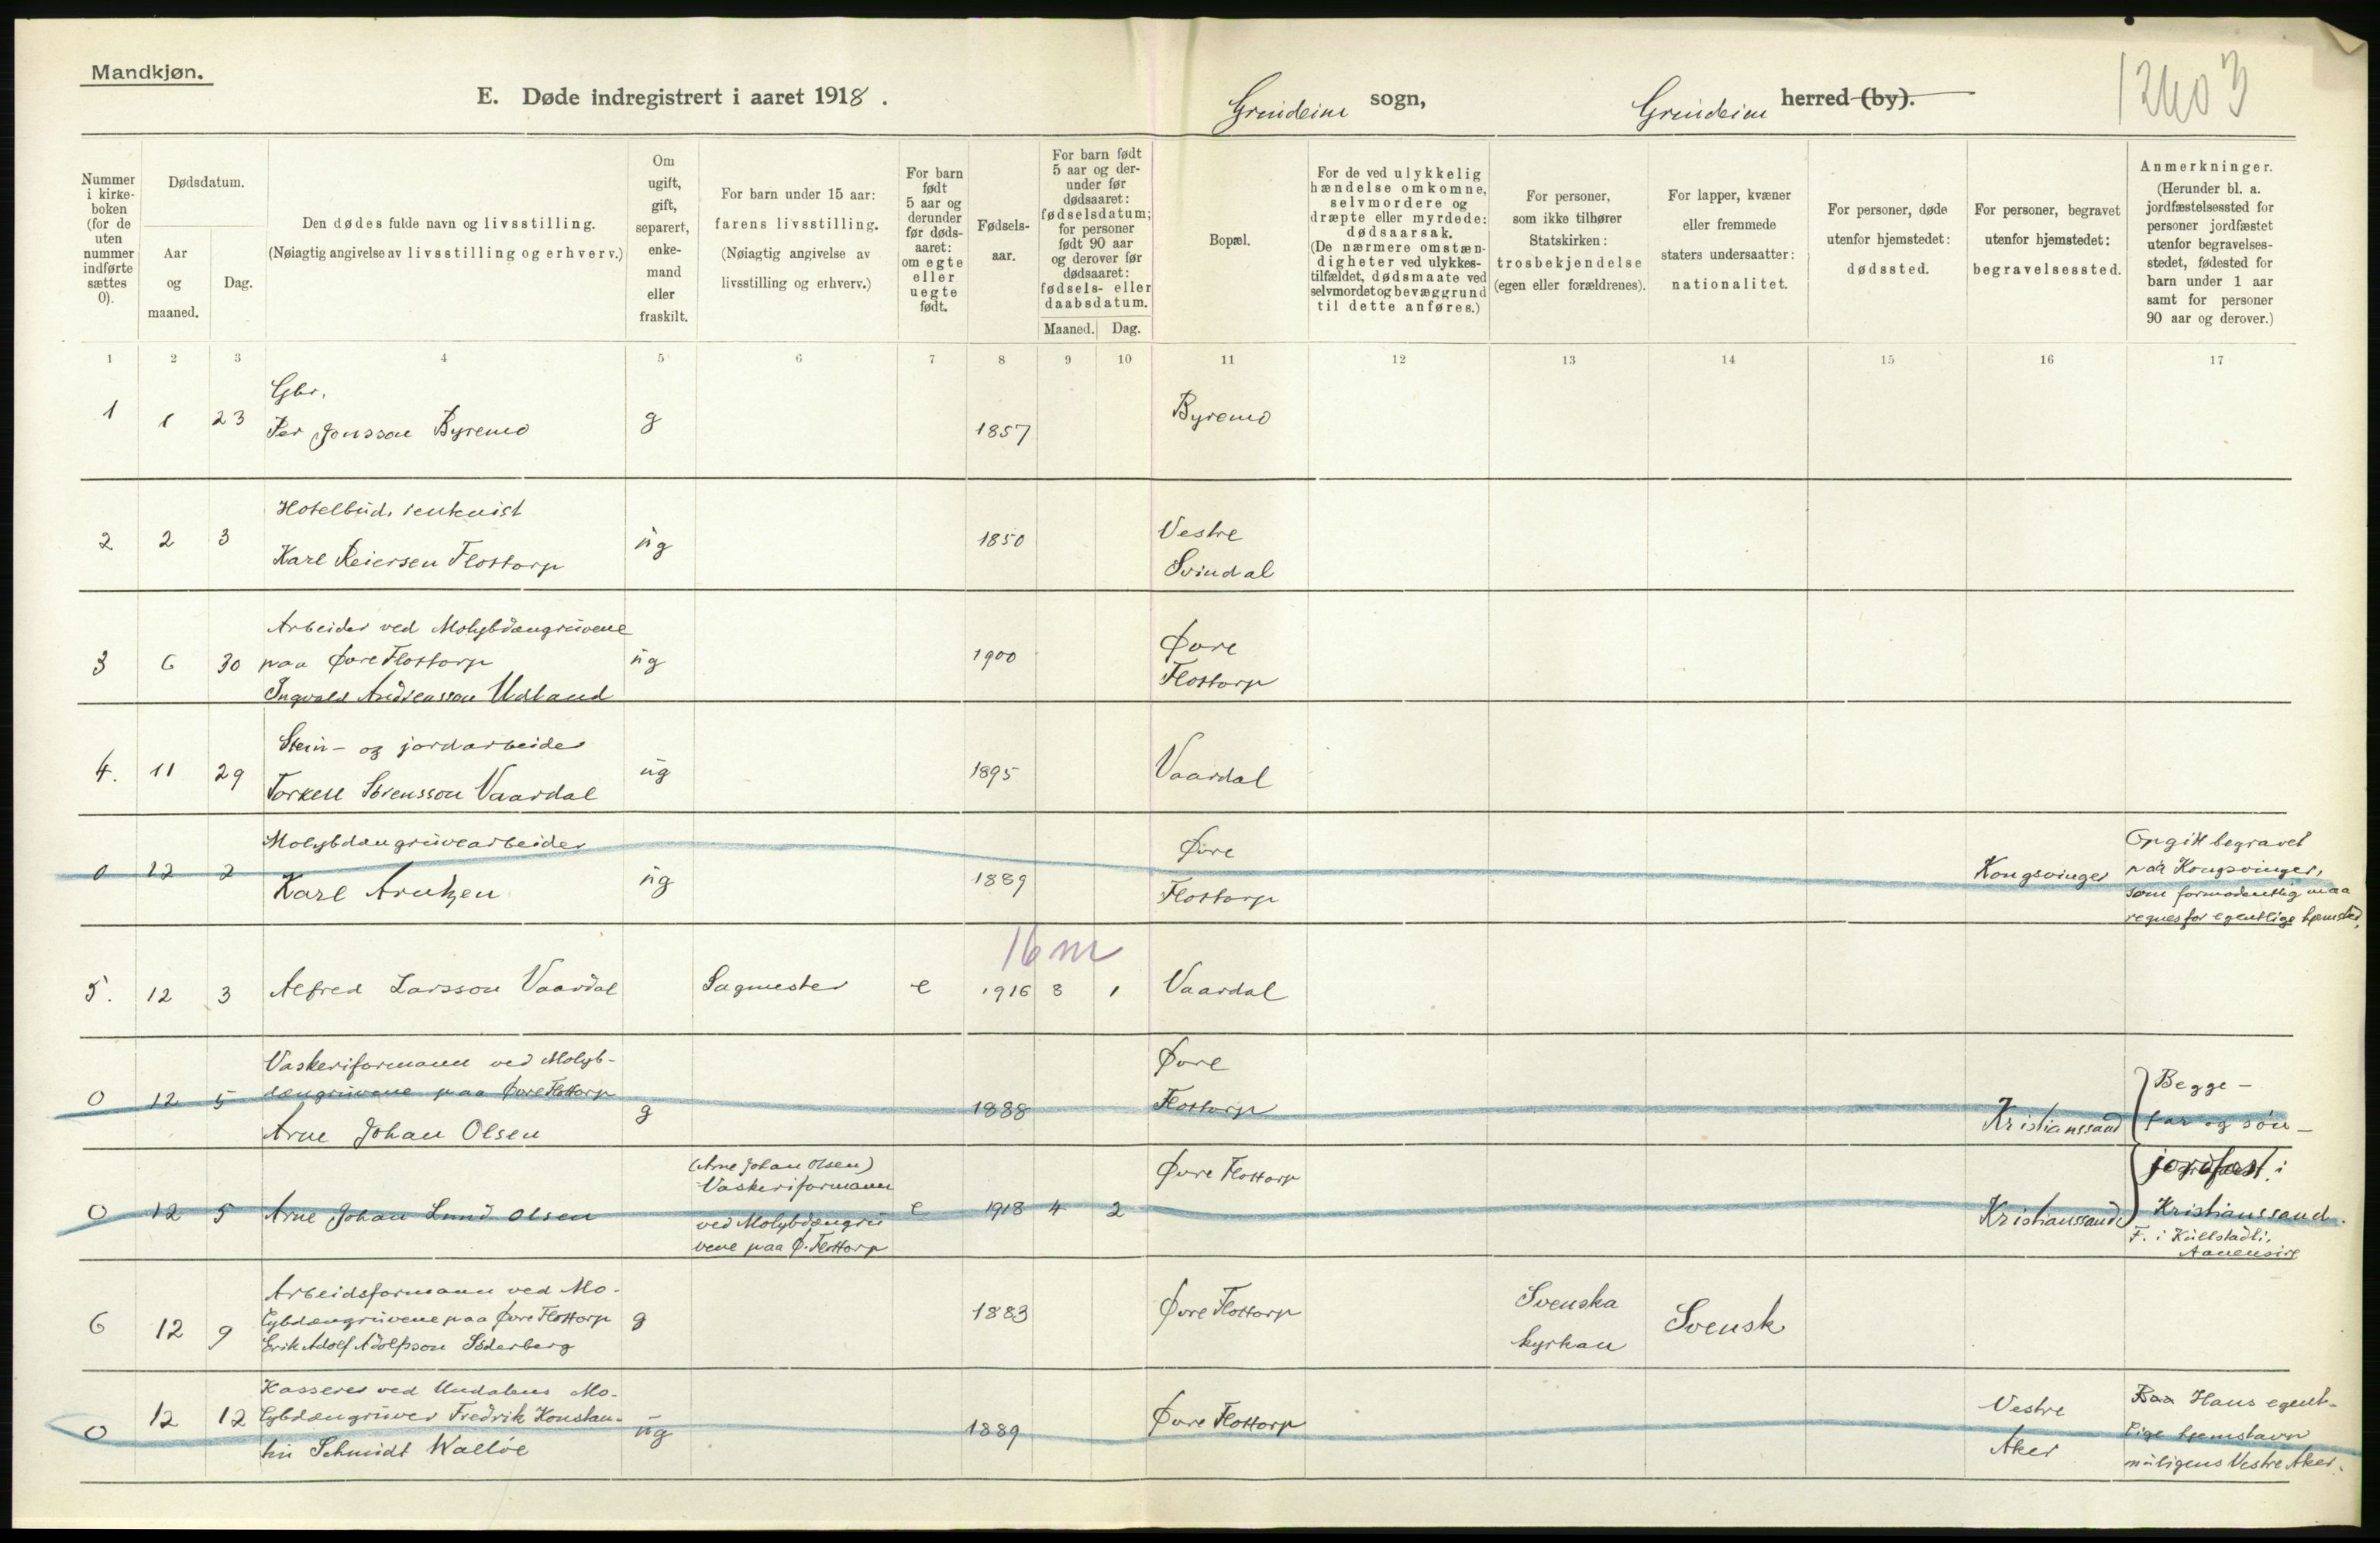 Mandkjøn.
E. Døde indregistrert i aaret 1918.
Grindeim sogn, Grindeim herred (by).
12403
Nummer i kirke-boken (for de uten nummer indførte sættes 0).
Dødsdatum.
Aar og maaned.
Dag.
Den dødes fulde navn og livsstilling.
(Nøiagtig angivelse av livsstilling og erhverv.)
Om ugift, gift, separert, enke-mand eller fraskilt.
For barn under 15 aar:
farens livsstilling.
(Nøiagtig angivelse av livsstilling og erhverv.)
For barn født 5 aar og derunder før døds-aaret: om egte eller uegte født.
Fødsels-aar.
For barn født 5 aar og der-under før dødsaaret: fødselsdatum; for personer født 90 aar og derover før dødsaaret: fødsels- eller daabsdatum.
Maaned. Dag.
Bopæl.
For de ved ulykkelig hændelse omkomne, selvmordere og dræpte eller myrdede: dødsaarsak.
(De nærmere omstæn-digheter ved ulykkes-tilfældet, dødsmaate ved selvmordet og bevæggrund til dette anføres.)
For personer, som ikke tilhører Statskirken: trosbekjendelse (egen eller forældrenes).
For lapper, kvæner eller fremmede staters undersaatter: nationalitet.
For personer, døde utenfor hjemstedet: dødssted.
For personer, begravet utenfor hjemstedet: begravelsessted.
Anmerkninger.
(Herunder bl. a. jordfæstelsessted for personer jordfæstet utenfor begravelses-stedet, fødested for barn under 1 aar samt for personer 90 aar og derover.)
1 2 3 4 5 6 7 8 9 10 11 12 13 14 15 16 17
Gbr.
1 1 23 Per Jonsson Byremo g 1857 Byremo
Hotelbud. rentenist
2 2 3 Karl Reiersen Flottorp ug 1850 Vestre
Svindal
Arbeider ved Molybdængruvene
3 6 30 paa Øvre Flottorp ug 1900 Øvre
Ingvald Andreassen Udland Flottorp
Stein- og jordarbeider
4. 11 29 Torkell Sørensson Vaardal ug 1895 Vaardal
Molybdængruvearbeider Øvre
0 12 2 Karl Arntzen ug 1889 Flottorp Kongsvinger
Opgitt begravet
paa Kongsvinger,
som formodentlig maa
regnes for egentlige hjemsted.
16 m
5. 12 3 Alfred Larsson Vaardal Sagmester e 1916 8 1 Vaardal
Vaskeriformann ved Molyb-
0 12 5 dængruvene paa Øvre Flottorp g 1888 Øvre
Arne Johan Olsen Flottorp Kristianssand
Begge -
far og søn -
jordfæst i
Kristianssand.
(Arne Johan Olsen)
Vaskeriformann
0 12 5 Arne Johan Lund Olsen ved Molybdængru e 1918 4 2 Øvre Flottorp Kristianssand
vene paa Ø. Flottorp
F. i
Aanensire
Arbeidsformann ved Mo-
6 12 9 lybdængruvene paa Øvre Flottorp g 1883 Øvre Flottorp Svenska kyrkan Svensk
Erik Adolf Adolfsson Söderberg
Kasserer ved Undalens Mo-
0 12 12 lybdængruver Fredrik Konstan- ug 1889 Øvre Flottorp Vestre
tin Schmidt Walløe Aker
Baa Hans egent-
lige hjemstavn
muligens Vestre Aker.